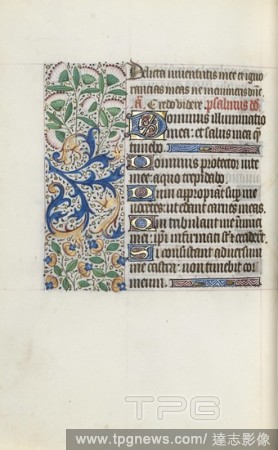 Delicta iuventutis mee et igno
rantias meas ne memineris dne.
a. Credo videre. psalmus dd.
Dominus illuminatio
mea: et salus mea q
timebo
Dominus protector vite
mee: a quo trepidabo
Dum appropiant sup me
nocentes: ut edant carnes meas.
Qui tribulant me inimici
mei: ipi infirmati st et cecider.
Si consistant adversum
me castra: non timebit cor
meum.
TPG
www.tpgnews.com/達志影像